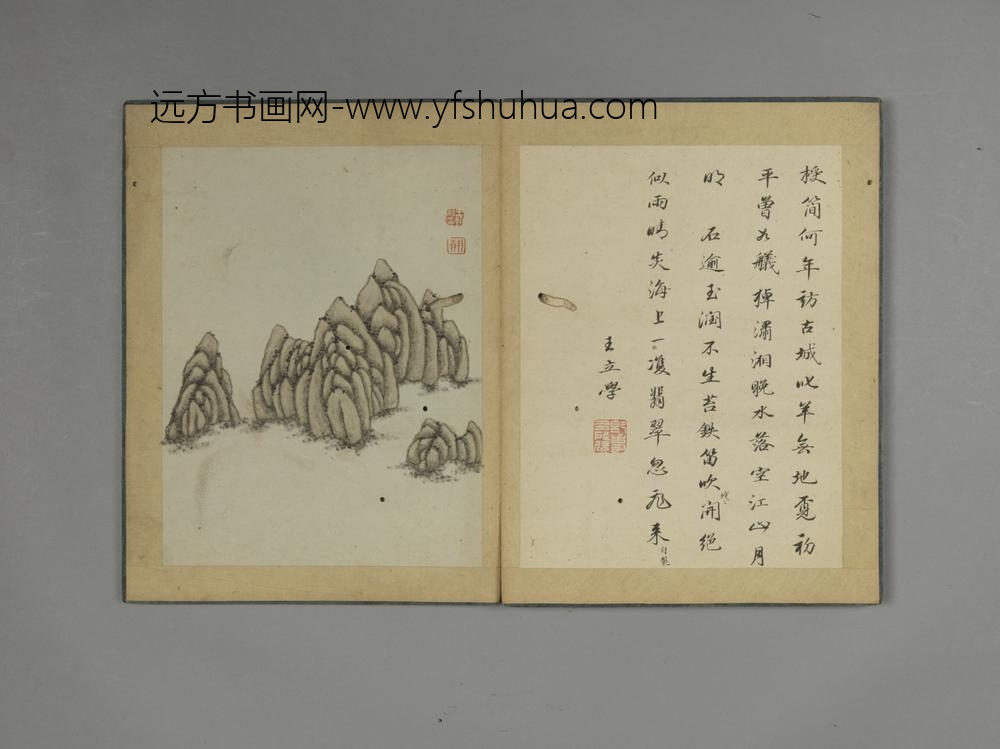 远方书画网-www.yfshuhua.com
授简何年訪古城此羊無地覓初
平曾為艤掉瀟湘晚水落空江山月
明 石逾玉潤不生苔鉄笛吹開絕
似雨晴炎海上一雙翡翠忽飛来
王立學